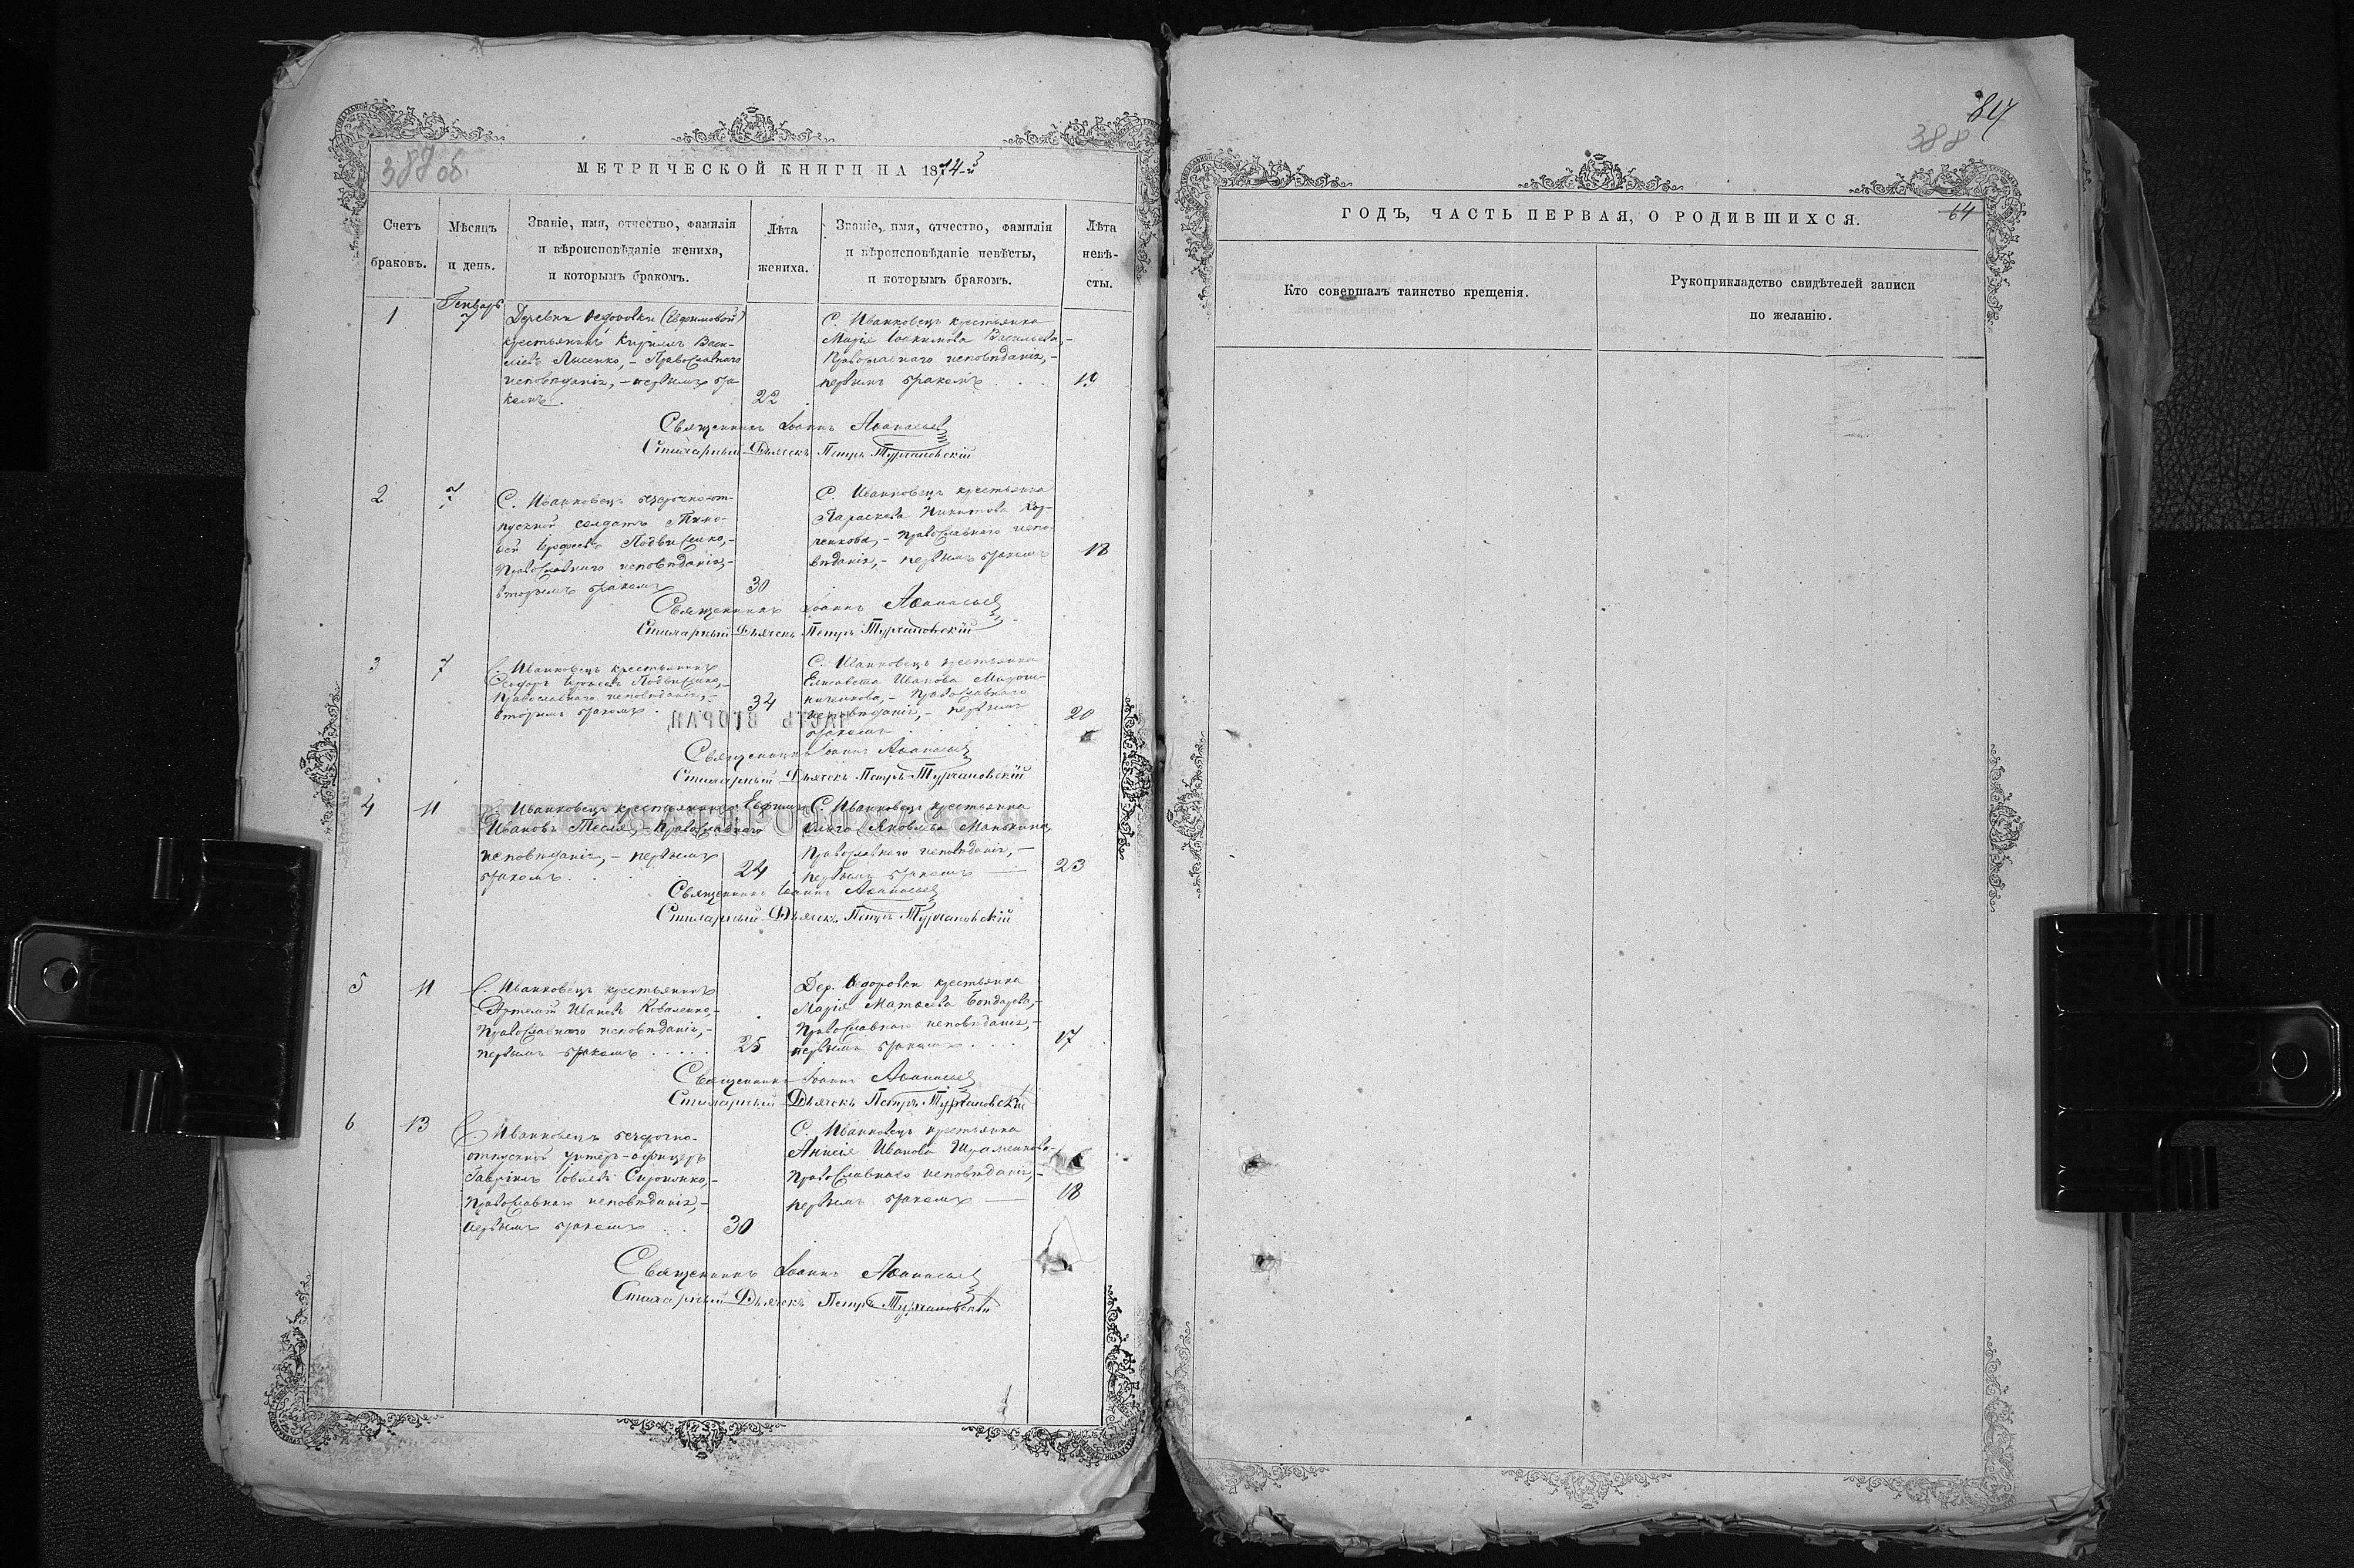 388 об.
МЕТРИЧЕСКОЙ КНИГИ НА 1874-й
Счетъ браковъ.
Мѣсяцъ и день.
Званіе, имя, отчество, фамилія
и вѣроисповѣданіе жениха,
и которымъ бракомъ.
Лѣта жениха.
Званіе, имя, отчество, фамилія
и вѣроисповѣданіе невѣсты,
и которымъ бракомъ.
Лѣта невѣ-
сты.
Генварь
1
7
Деревни Ѳедоровки (Евфимовой)
крестьянинъ Кириллъ Васи-
ліевъ Лысенко, – Православнаго
исповѣданія, – первымъ бра-
комъ.
22
С. Иванковецъ крестьянка
Марія Іоакимова Васильева, –
Православнаго исповѣданія, –
первымъ бракомъ
19
Священникъ Іоаннъ Аѳанасьев
Стихарный Дьячекъ Петръ Турчановскій
2
7
С. Иванковецъ безсрочно-от-
пускной солдатъ Тимо-
ѳей Іерофеевъ Подвисенко, –
Православнаго исповѣданія, –
вторымъ бракомъ
30
С. Иванковецъ крестьянка
Параскева Никитова
Православнаго испо-
вѣданія, – первымъ бракомъ
18
Священникъ Іоаннъ Аѳанасьев
Стихарный Дьячекъ Петръ Турчановскій
3
7
С. Иванковецъ крестьянинъ
Православнаго исповѣданія, –
вторымъ бракомъ
34
С. Иванковецъ крестьянка
Елисавета Иванова Мирош-
ниченкова, – Православнаго
исповѣданія, – первымъ
бракомъ
20
Священникъ Іоаннъ Аѳанасьев
Стихарный Дьячекъ Петръ Турчановскій
4
11
С. Иванковецъ крестьянинъ Евфимъ
Ивановъ Тесля, – Православнаго
исповѣданія, – первымъ
бракомъ.
24
С. Иванковецъ крестьянка
Ольга Яковлева Манькина,
Православнаго исповѣданія, –
первымъ бракомъ —
23
Священникъ Іоаннъ Аѳанасьев
Стихарный Дьячекъ Петръ Турчановскій
5
11
С. Иванковецъ крестьянинъ
Артемій Ивановъ Коваленко, –
Православнаго исповѣданія, –
первымъ бракомъ
25
Дер. Ѳедоровки крестьянка
Марія Матвѣева Бондарева, –
Православнаго исповѣданія, –
первымъ бракомъ
17
Священникъ Іоаннъ Аѳанасьев
Стихарный Дьячекъ Петръ Турчановскій
6
13
С. Иванковецъ безсрочно-
отпускной унтеръ-офицеръ
Гавріилъ Іовлевъ Сиротенко, –
Православнаго исповѣданія, –
первымъ бракомъ
30
С. Иванковецъ крестьянка
Анисія Иванова Шраменкова –
Православнаго исповѣданія, –
первымъ бракомъ —
18
Священникъ Іоаннъ Аѳанасьев
Стихарный Дьячекъ Петръ Турчановскій
388
ГОДЪ, ЧАСТЬ ПЕРВАЯ, О РОДИВШИХСЯ.
64
Кто совершалъ таинство крещенія.
Рукоприкладство свидѣтелей записи
по желанію.